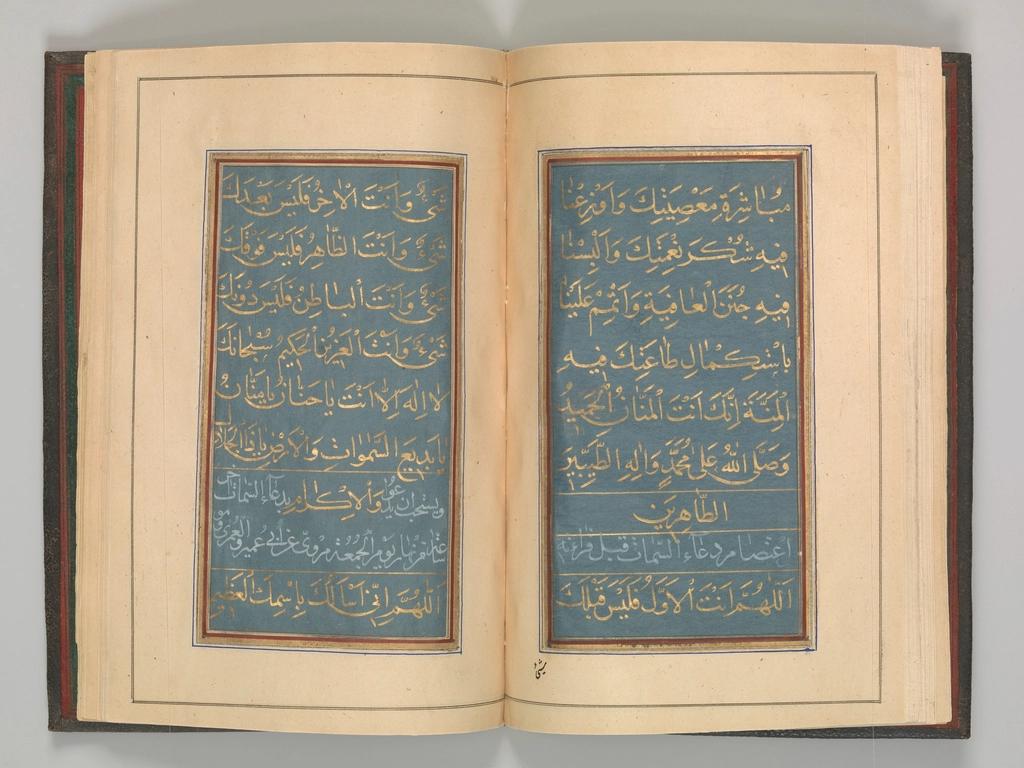 مُبَاشَرَةِ مَعْصِيَتِكَ وَاَوْزِعْنَا
فِيهِ شُكْرَ نِعْمَتِكَ وَاَلْبِسْنَا
فِيهِ جُنَنَ الْعَافِيَةِ وَاَتْمِمْ عَلَيْنَا
بِاسْتِكْمَالِ طَاعَتِكَ فِيهِ
الْمِنَّةَ اِنَّكَ اَنْتَ الْمَنَّانُ الْحَمِيدُ
وَصَلَّى اللهُ عَلٰى مُحَمَّدٍ وَاٰلِهِ الطَّيِّبِينَ
الطَّاهِرِينَ
دعاء السمات قبل قرائته
اَللّٰهُمَّ اَنْتَ الْاَوَّلُ فَلَيْسَ قَبْلَكَ
شَىْءٌ وَاَنْتَ الْاٰخِرُ فَلَيْسَ بَعْدَكَ
شَىْءٌ وَاَنْتَ الظَّاهِرُ فَلَيْسَ فَوْقَكَ
شَىْءٌ وَاَنْتَ الْبَاطِنُ فَلَيْسَ دُونَكَ
شَىْءٌ وَاَنْتَ الْعَزِيزُ الْحَكِيمُ سُبْحَانَكَ
لَا اِلٰهَ اِلَّا اَنْتَ يَا حَنَّانُ يَا مَنَّانُ
يَا بَدِيعَ السَّمٰوَاتِ وَالْاَرْضِ يَا ذَا الْجَلَالِ
وَالْاِكْرَامِ ويستحب ان يدعو بدعاء السمات
يوم الجمعة مروى عن أبي عمرو العمروى
اَللّٰهُمَّ اِنِّى اَسْاَلُكَ بِاسْمِكَ الْعَظِيمِ